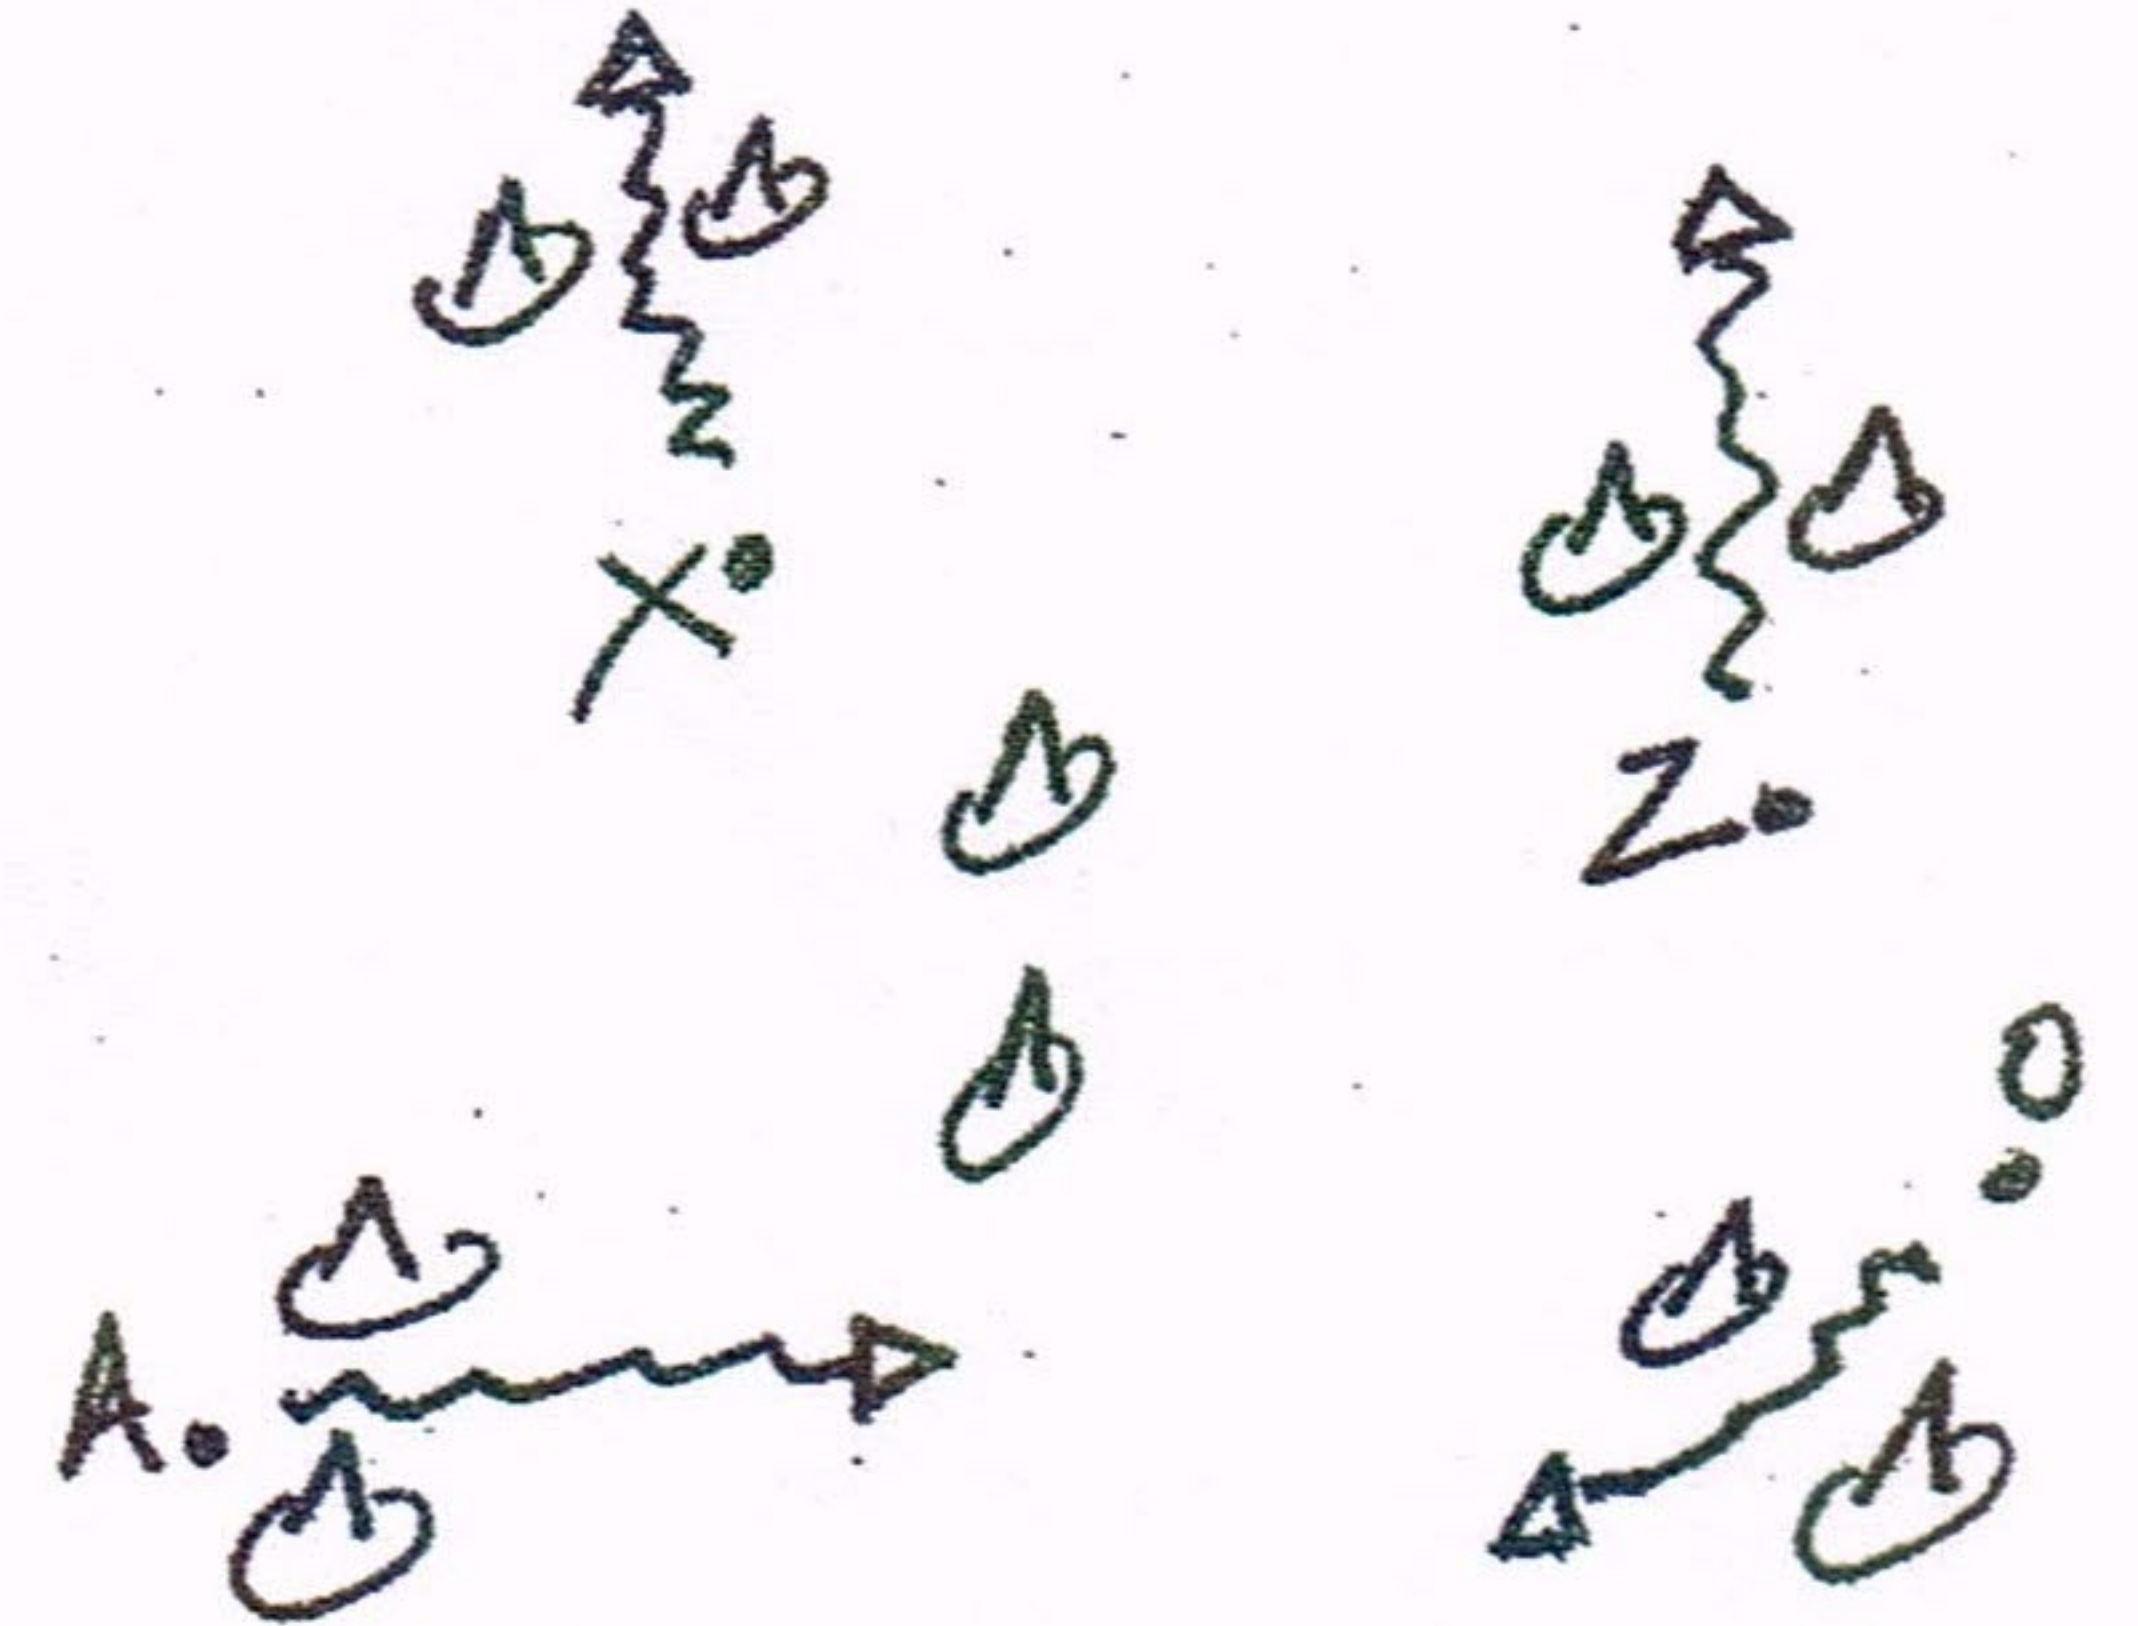 X
Z
O
A